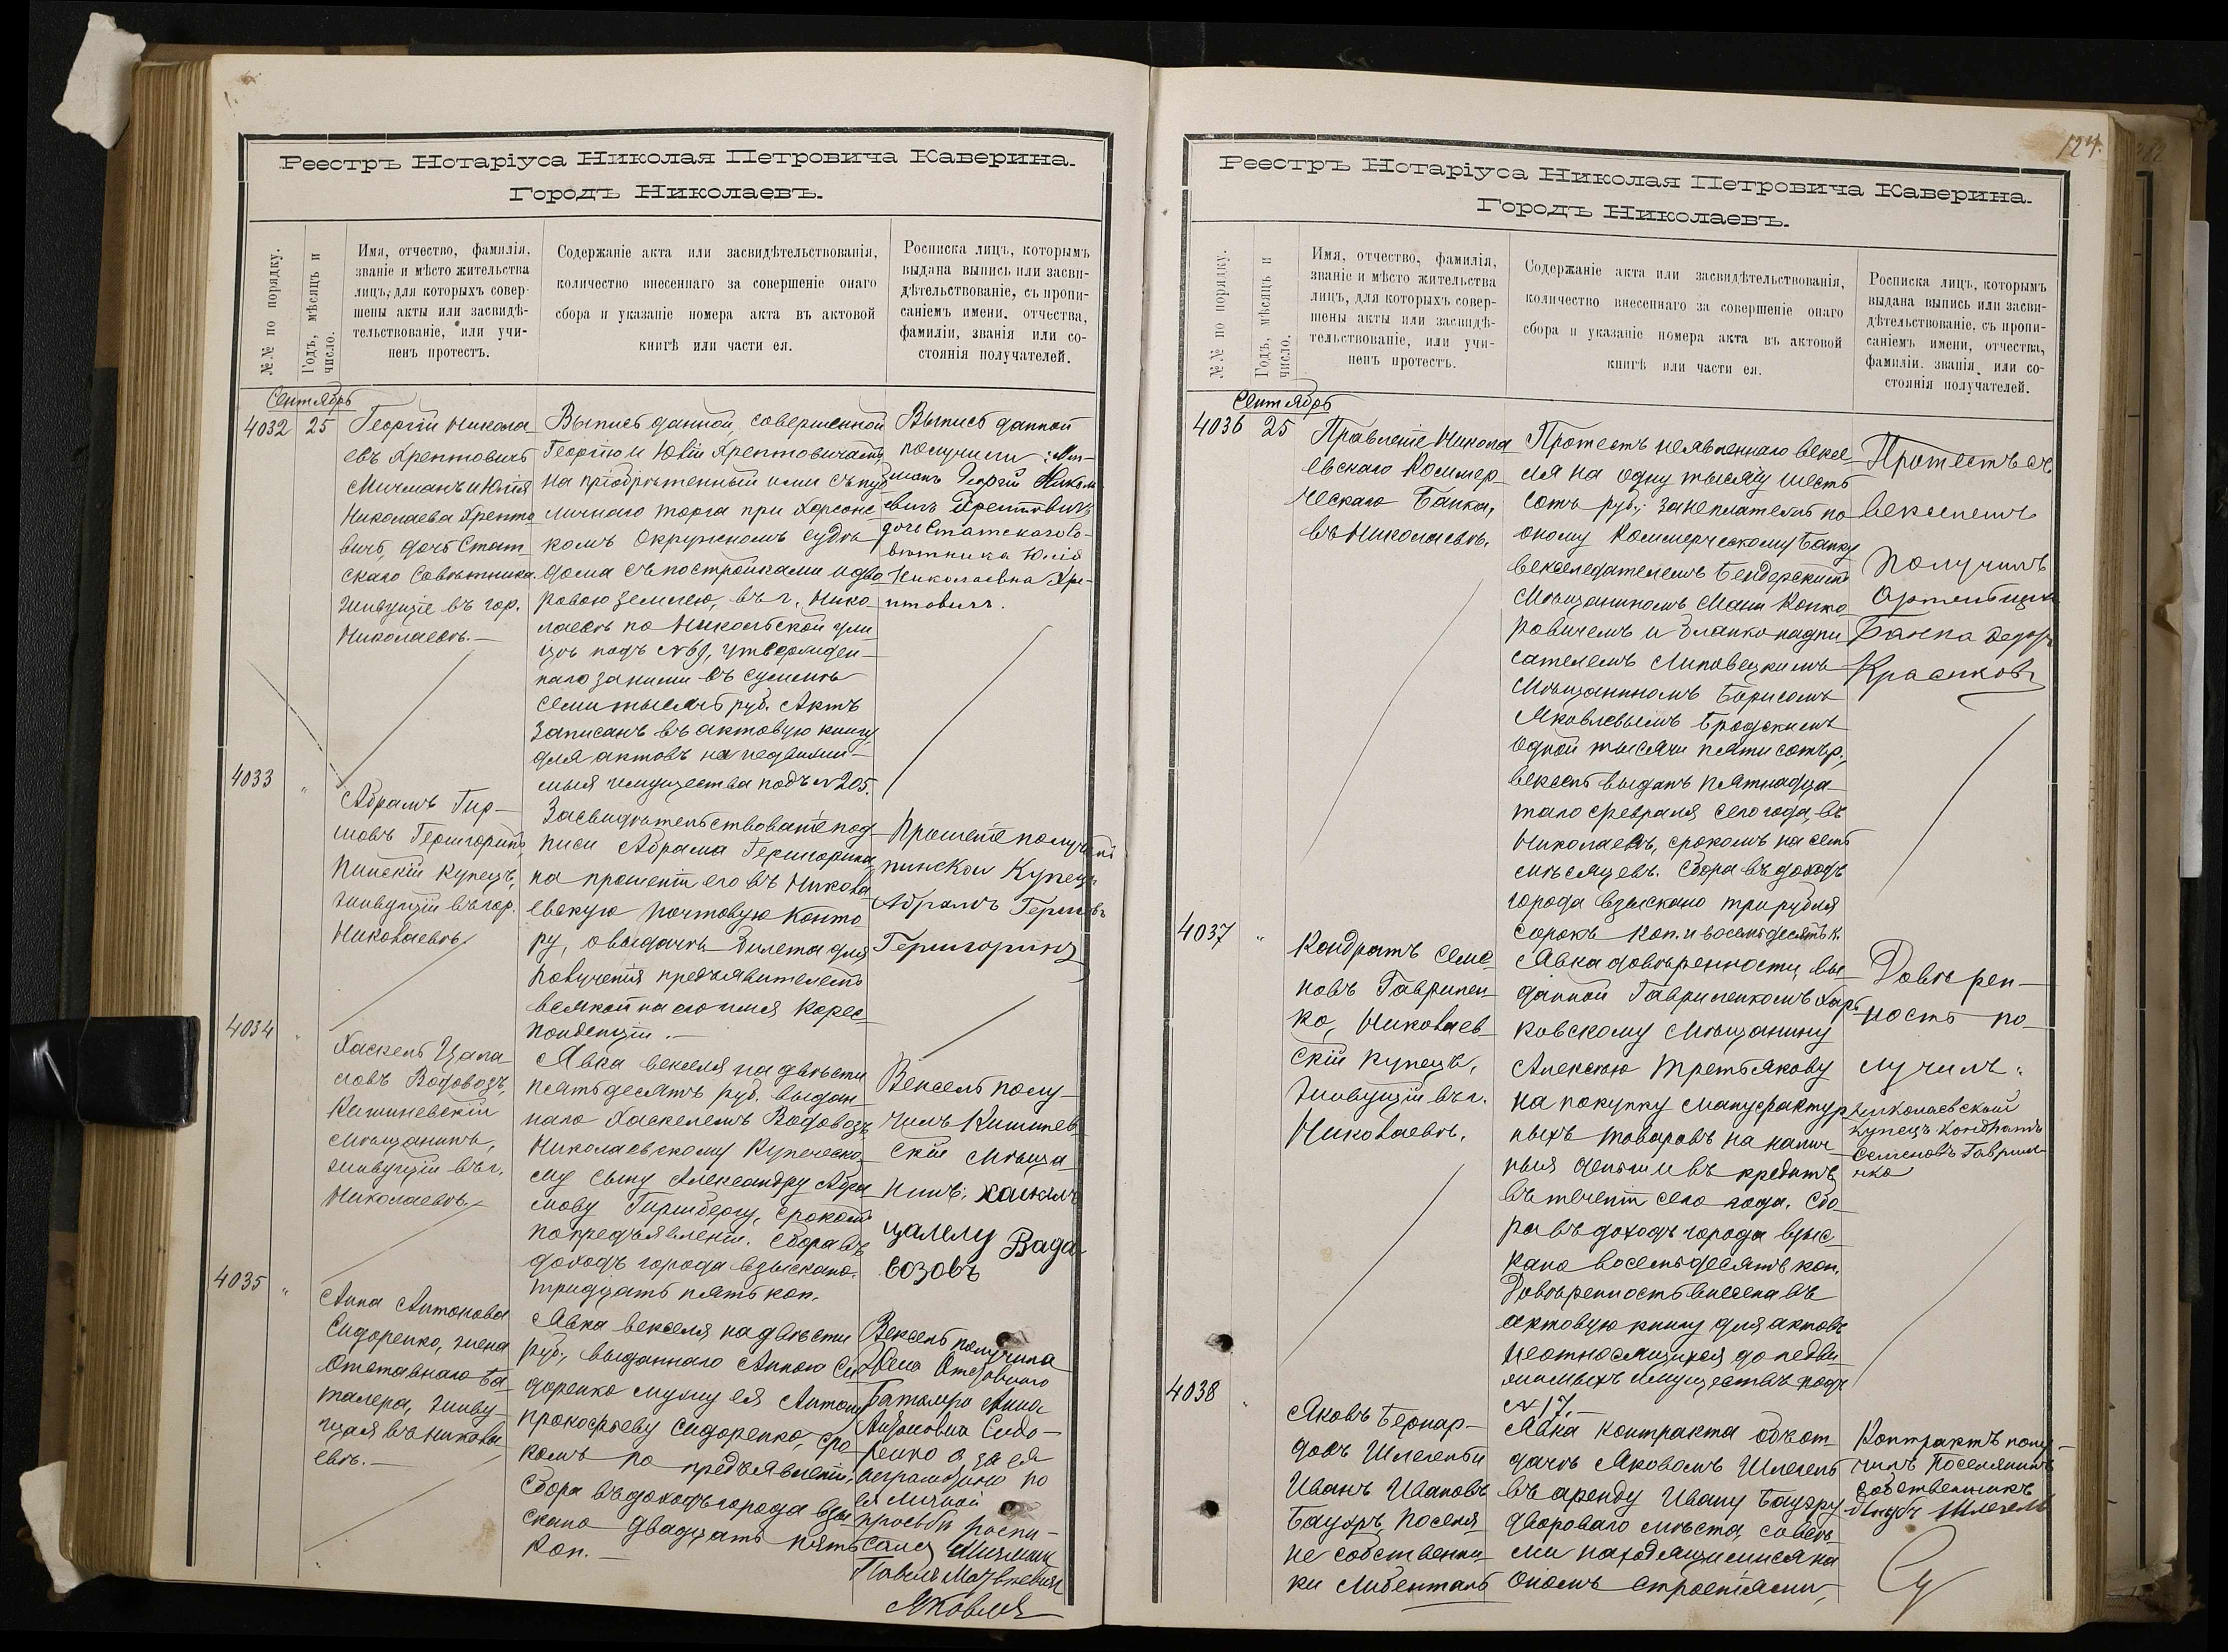 Реестръ Нотаріуса Николая Петровича Каверина.
Городъ Николаевъ.
№№ по порядку.
Годъ, мѣсяцъ и
число.
Имя, отчество, фамилія,
званіе и мѣсто жительства
лицъ, для которыхъ совер-
шены акты или засвидѣ-
тельствованіе, или учи-
ненъ протестъ.
Содержаніе акта или засвидѣтельствованія,
количество внесеннаго за совершеніе онаго
сбора и указаніе номера акта въ актовой
книгѣ или части ея.
Росписка лицъ, которымъ
выдана выпись или засви-
дѣтельствованіе, съ пропи-
саніемъ имени, отчества,
фамиліи, званія или со-
стоянія получателей.
Сентябрь
4032
25
Георгій Никола
евъ Крептовичъ
Мичманъ и Юлія
Николаева Крепто
вичъ, дочь Стат
скаго Совѣтника
живущіе въ гор.
Николаевѣ.—
Выпись данной, совершенной
Георгію и Юліи Крептовичамъ
на пріобрѣтенный ими съ пуб
личнаго торга при Херсонс
комъ Окружномъ судѣ
дома съ постройками и дво
ровою землею, въ г. Нико
лаевѣ по Никольской ули
цѣ подъ №
наго за ними въ суммѣ
семи тысячъ руб. Актъ
записанъ въ актовую книгу
для актовъ на недвижи—
мыя имущества подъ № 205.
Выпись данной
получили: Мич-
манъ Георгій Никола
дочь Статскаго Со-
вѣтника Юлія
Николаевна Кре-
птовичъ.
4033
"
Абрамъ Гир—
шовъ Гершгоринъ,
Пинскій Купецъ,
живущій въ гор.
Николаевѣ
Засвидѣтельствованіе под
писи Абрама Гершгорина,
на прошеніи его въ Никола
евскую Почтовую Конто
ру, о выдачѣ билета для
получения предъявителемъ
всякой на его имя Корес
понденціи.—
Прошеніе получилъ
пинской Купецъ
Абрамъ Гершовъ
Гершгоринъ
4034
"
Хаскель Цала
ловъ Водовозъ,
Кишиневскій
мѣщанинъ,
живущій въ г.
Николаевѣ
Явка векселя на двѣсти
пятьдесятъ руб. выдан
наго Хаскелемъ Водовозъ
Николаевскому Купеческо
му сыну Александру Абра
мову Гиршбергу, срокомъ
по предъявленіи. Сбора въ
доходъ города взыскано
тридцать пять коп.
Вексель полу—
чилъ Кишинев
скій Мѣща
нинъ:
Вада
возовъ
4035
"
Анна Антонова
Сидоренко, жена
Отставнаго Ба
талера, живу—
щая въ Никола
евѣ.—
Явка векселя на двѣсти
руб., выданнаго Анною Си
доренко мужу ея Антону
Прокофьеву Сидоренко, сро
комъ по предъявленіи.
Сбора въ доходъ города взы
скано двадцать пять
коп.—
Вексель получила
Жена Отставного
Баталера Анна
Антоновна Сидо—
ренко а за ея
неграмотную по
ея личной
прозьбы роспи—
сался
Павелъ
Яковлевъ
124.
Реестръ Нотаріуса Николая Петровича Каверина.
Городъ Николаевъ.
№№ по порядку.
Годъ, мѣсяцъ и
число.
Имя, отчество, фамилія,
званіе и мѣсто жительства
лицъ, для которыхъ совер-
шены акты или засвидѣ-
тельствованіе, или учи-
ненъ протестъ.
Содержаніе акта или засвидѣтельствованія,
количество внесеннаго за совершеніе онаго
сбора и указаніе номера акта въ актовой
книгѣ или части ея.
Росписка лицъ, которымъ
выдана выпись или засви-
дѣтельствованіе, съ пропи-
саніемъ имени, отчества,
фамиліи. званія. или со-
стоянія получателей.
Сентябрь
4036
25
Правленіе Никола
евскаго Коммер
ческаго Банка,
въ Николаевѣ.
Протестъ неявленнаго вексе
ля на одну тысячу шесть
сотъ руб., за неплатежъ по
оному Коммерческому Банку
векселедателемъ Бендерскимъ
Мѣщаниномъ
ровичемъ и бланконадпи
сателемъ Липовецкимъ
Мѣщаниномъ Борисомъ
Яковлевымъ Бродскимъ
одной тысячи пяти сотъ р.,
вексель выданъ пятнадца
таго февраля сего года въ
Николаевѣ, срокомъ на семь
мѣсяцевъ. Сбора въ доходъ
города взыскано три рубля
сорокъ коп. и восемьдесятъ к.
Протестъ съ
векселемъ
получилъ
Артельщикъ
Банка Федоръ
Красиковъ
4037
"
Кондратъ Семе
новъ Гаврилен
ко, Николаев
скій купецъ,
живущій въ г.
Николаевѣ.
Явка довѣренности, вы
данной Гавриленкомъ Харь
ковскому мѣщанину
Алексѣю Третьякову
на покупку мануфактур
ныхъ товаровъ на налич
ныя деньги и въ кредитъ
въ теченіи сего года. Сбо
ра въ доходъ города взыс
кано восемьдесятъ коп.
Довѣренность внесена въ
актовую книгу для актовъ
неотносящихся до недви
жимыхъ имуществъ подъ
№ 17.—
Довѣрен—
ность по—
лучилъ:
Николаевский
купецъ Кондратъ
Семеновъ Гаврилен
нко
4038
"
Яковъ Бернар—
довъ Шлегель и
Иванъ Ивановъ
Бауэръ, поселя
не собственни
ки Либенталь
Явка контракта объ от
дачѣ Яковомъ Шлегель
въ аренду Ивану Бауэру
двороваго мѣста, со всѣ
ми находящимися на
ономъ строеніями,
Контрактъ полу—
чилъ Поселянинъ
собственникъ
Якубъ Шлегель